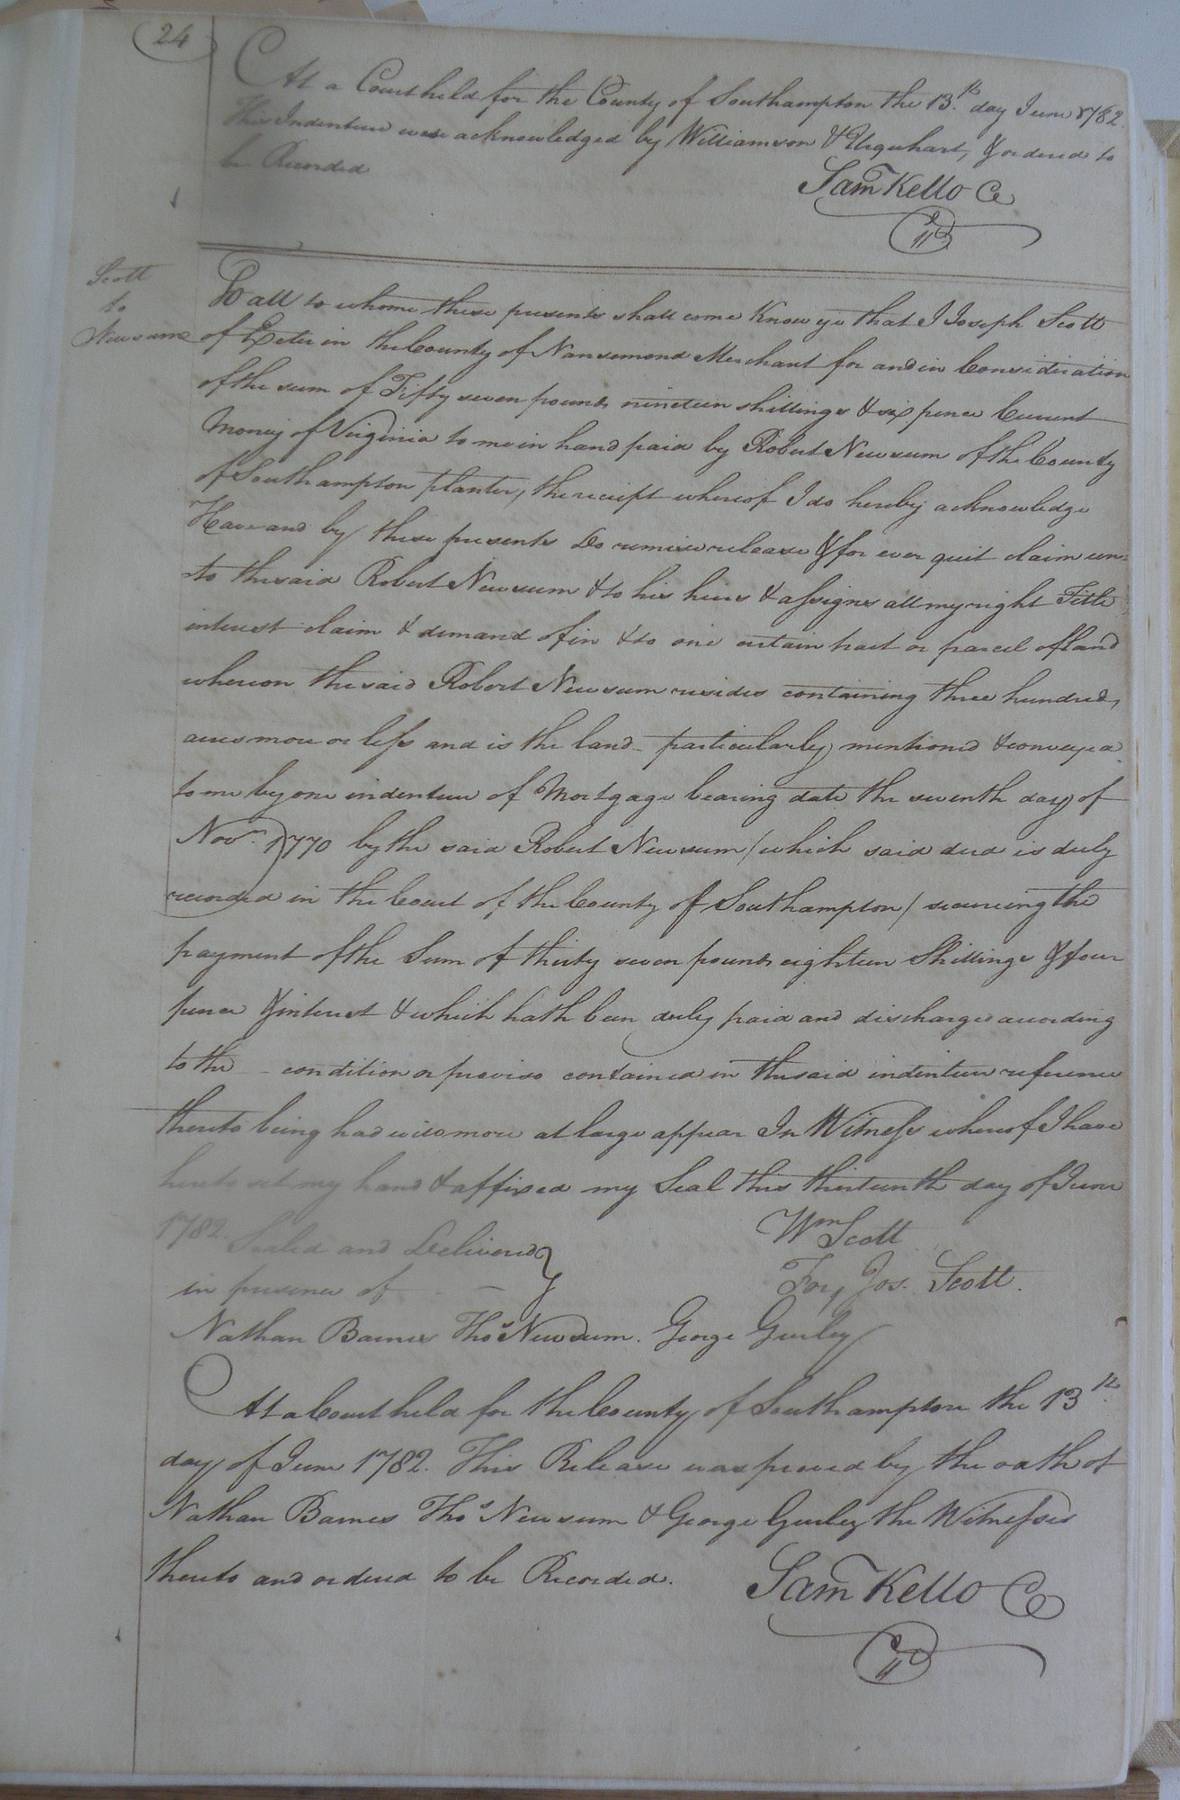 24
At a Court held for the County of Southampton the 13th day June 1782
This Indenture was acknowledged by Williamson & Urquhart, & ordered to
be Recorded
Sam Kello Ce
Scott
to
Newsume
To all to whome these presents shall come Know ye that I Joseph Scott
of in the County of Nansemond Merchant for and in Consideration
of the sum of Fifty seven pounds nineteen shillings & six pence Current
Money of Virginia to me in hand paid by Robert Newsum of the County
of Southampton planter, the receipt whereof I do hereby acknowledge
Have and by these presents Do remise release & for ever quit claim un=
to the said Robert Newsum & to his heirs & assigns all my right Title
interest claim & demand of in & to one certain tract or parcel of land
whereon the said Robert Newsum resides containing three hundred,
acres more or less and is the land particularly mentioned & conveyed
to me by one indenture of Mortgage bearing date the seventh day of
Novr. 1770 by the said Robert Newsum / which said deed is duly
recorded in the Court of the County of Southampton / securing the
payment of the Sum of thirty seven pounds eighteen Shillings & four
pence & interest & which hath been duly paid and discharged according
to the - condition or proviso contained in the said indenture reference
thereto being had will more at large appear In Witness whereof I have
hereto set my hand & affixed my Seal this thirteenth day of June
1782. Sealed and Delivered
Wm Scott
in presence of -
For Jos. Scott.
Nathan Barnes Thos Newsum. George Gurley
At a Court held for the County of Southampton the 13th
day of June 1782. This Release was proved by the oath of
Nathan Barnes Thos Newsum & George Gurley the Witnesses
thereto and ordered to be Recorded.
Sam Kello Ce